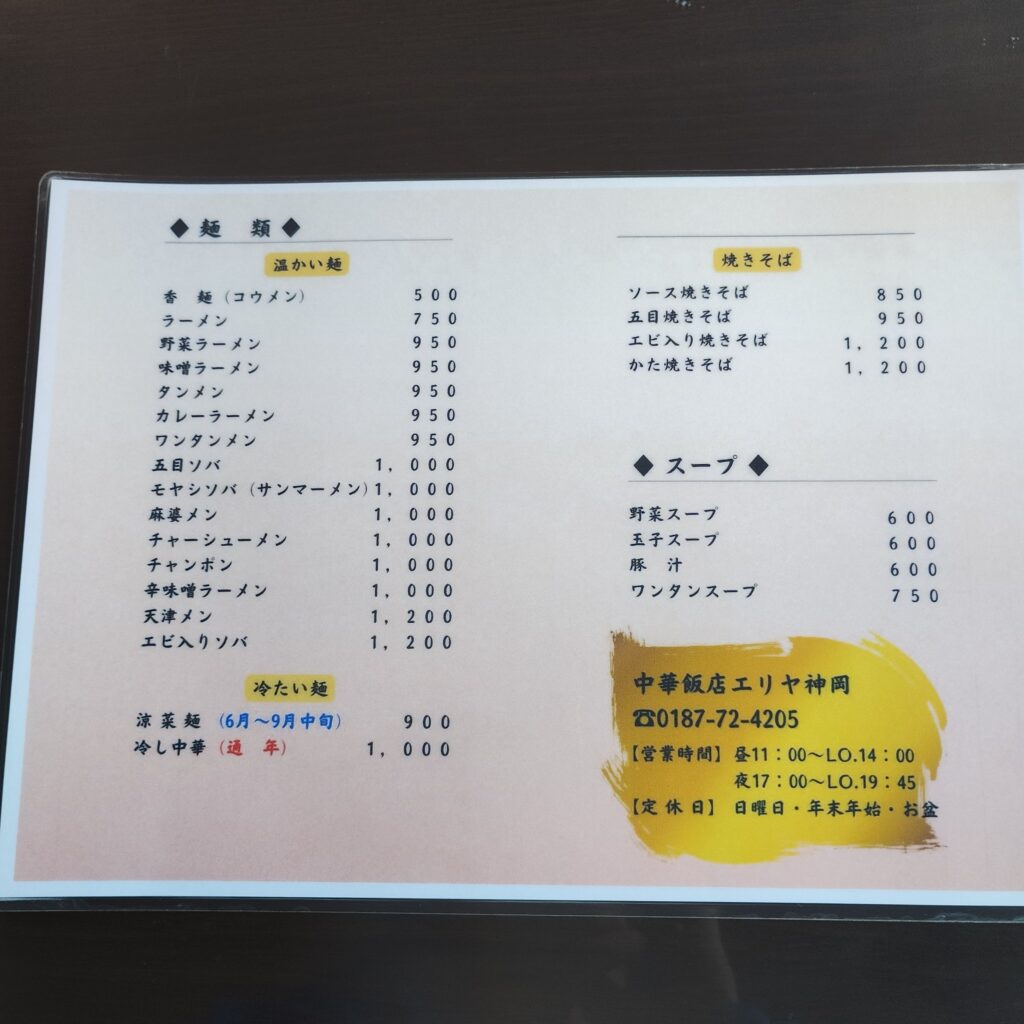 ◆ 麺　類 ◆
温かい麺
香　麺（コウメン） 500
ラーメン 750
野菜ラーメン 950
味噌ラーメン 950
タンメン 950
カレーラーメン 950
ワンタンメン 950
五目ソバ 1,000
モヤシソバ（サンマーメン） 1,000
麻婆メン 1,000
チャーシューメン 1,000
チャンポン 1,000
辛味噌ラーメン 1,000
天津メン 1,200
エビ入りソバ 1,200
冷たい麺
涼菜麺（6月～9月中旬） 900
冷し中華（通　年） 1,000
焼きそば
ソース焼きそば 850
五目焼きそば 950
エビ入り焼きそば 1,200
かた焼きそば 1,200
◆ スープ ◆
野菜スープ 600
玉子スープ 600
豚　汁 600
ワンタンスープ 750
中華飯店エリヤ神岡
☎0187-72-4205
【営業時間】昼11：00～LO.14：00
夜17：00～LO.19：45
【定休日】 日曜日・年末年始・お盆